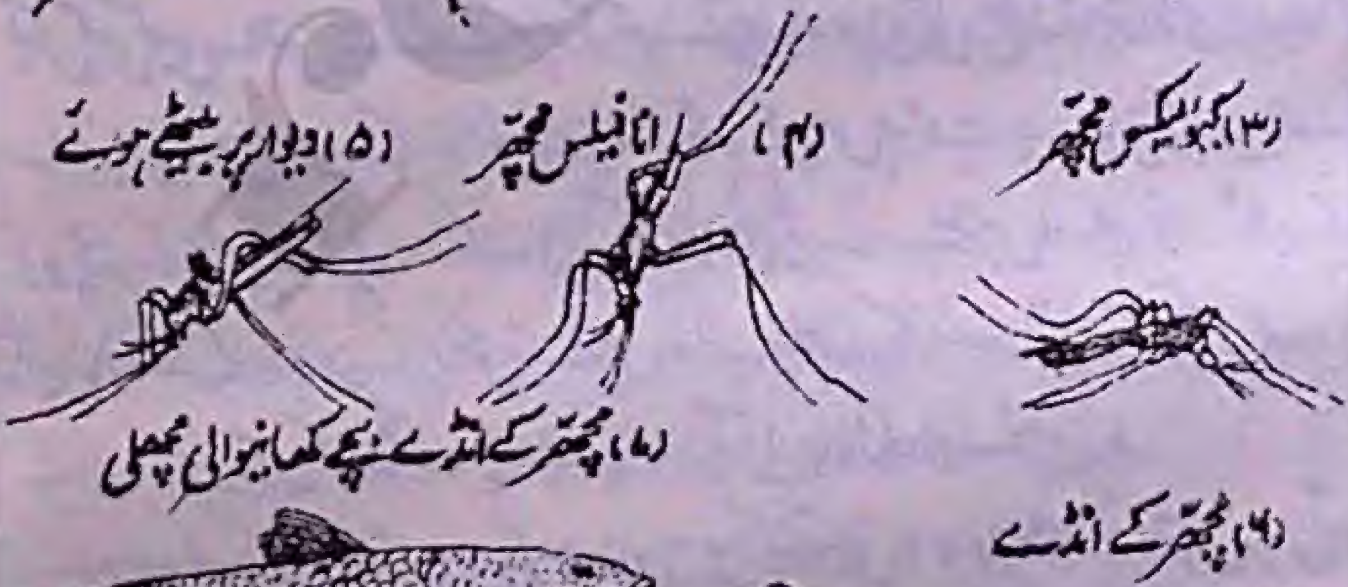 (۳) کیولیکس مچھر
(۴) انافیلس مچھر
(۵) دیوار پر بیٹھے ہوئے
(۶) مچھر کے انڈے
(۷) مچھر کے انڈے بچے کھانیوالی مچھلی